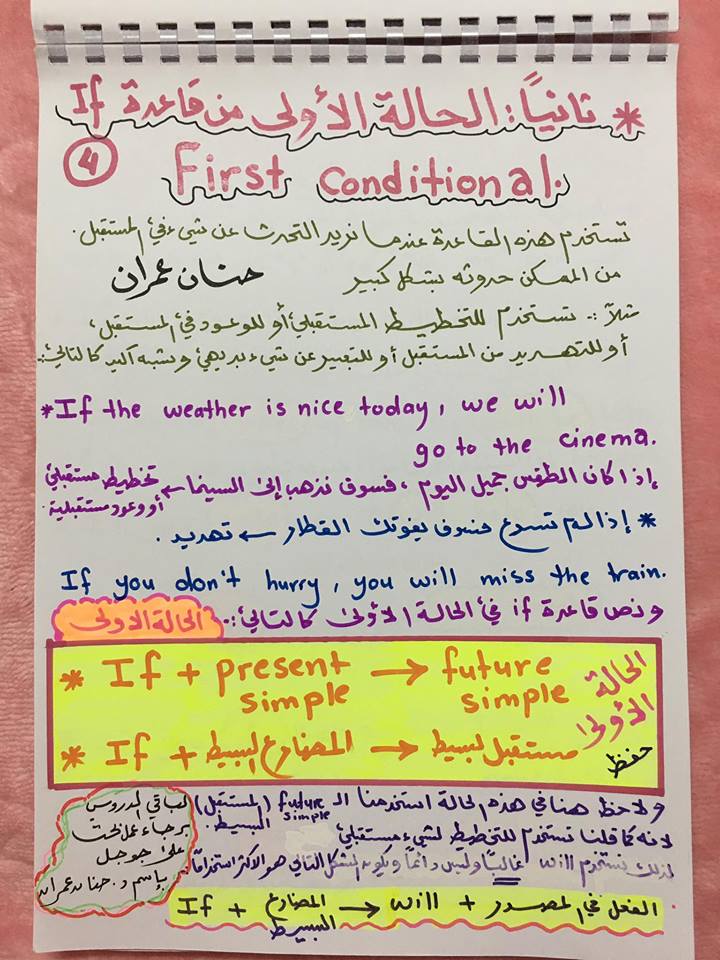 * ثانياً: الحالة الأولى من قاعدة If
4
First Conditional.
تستخدم هذه القاعدة عندما نريد التحدث عن شيء في المستقبل.
من الممكن حدوثه بشكل كبير
حنان عمران
مثلاً:. تستخدم للتخطيط المستقبلي أو للوعود في المستقبل،
أو للتهديد من المستقبل أو للتعبير عن شيء بديهي وشبه أكيد كالتالي:.
*If the weather is nice today, we will
go to the cinema.
إذا كان الطقس جميل اليوم، فسوف نذهب إلى السينما ← تخطيط مستقبلي
أو وعود مستقبلية.
* إذا لم تسرع فسوف يفوتك القطار ← تهديد.
If you don't hurry, you will miss the train.
ونص قاعدة if في الحالة الأولى كالتالي:.
الحالة الاولى
* If + present simple → future simple
* If + المضارع البسيط → مستقبل بسيط
الحالة الأولى
حفظ
ولاحظ هنا في هذه الحالة استخدمنا الـ future simple (المستقبل البسيط)
لانه كما قلنا تستخدم للتخطيط لشيء مستقبلي
لذلك نستخدم will غالباً وليس دائماً ويكون الشكل التالي هو الاكثر استخداماً:
If + المضارع البسيط → will + الفعل في المصدر.
لباقي الدروس
برجاء عمل بحث
على جوجل
بإسم د. حنان عمران